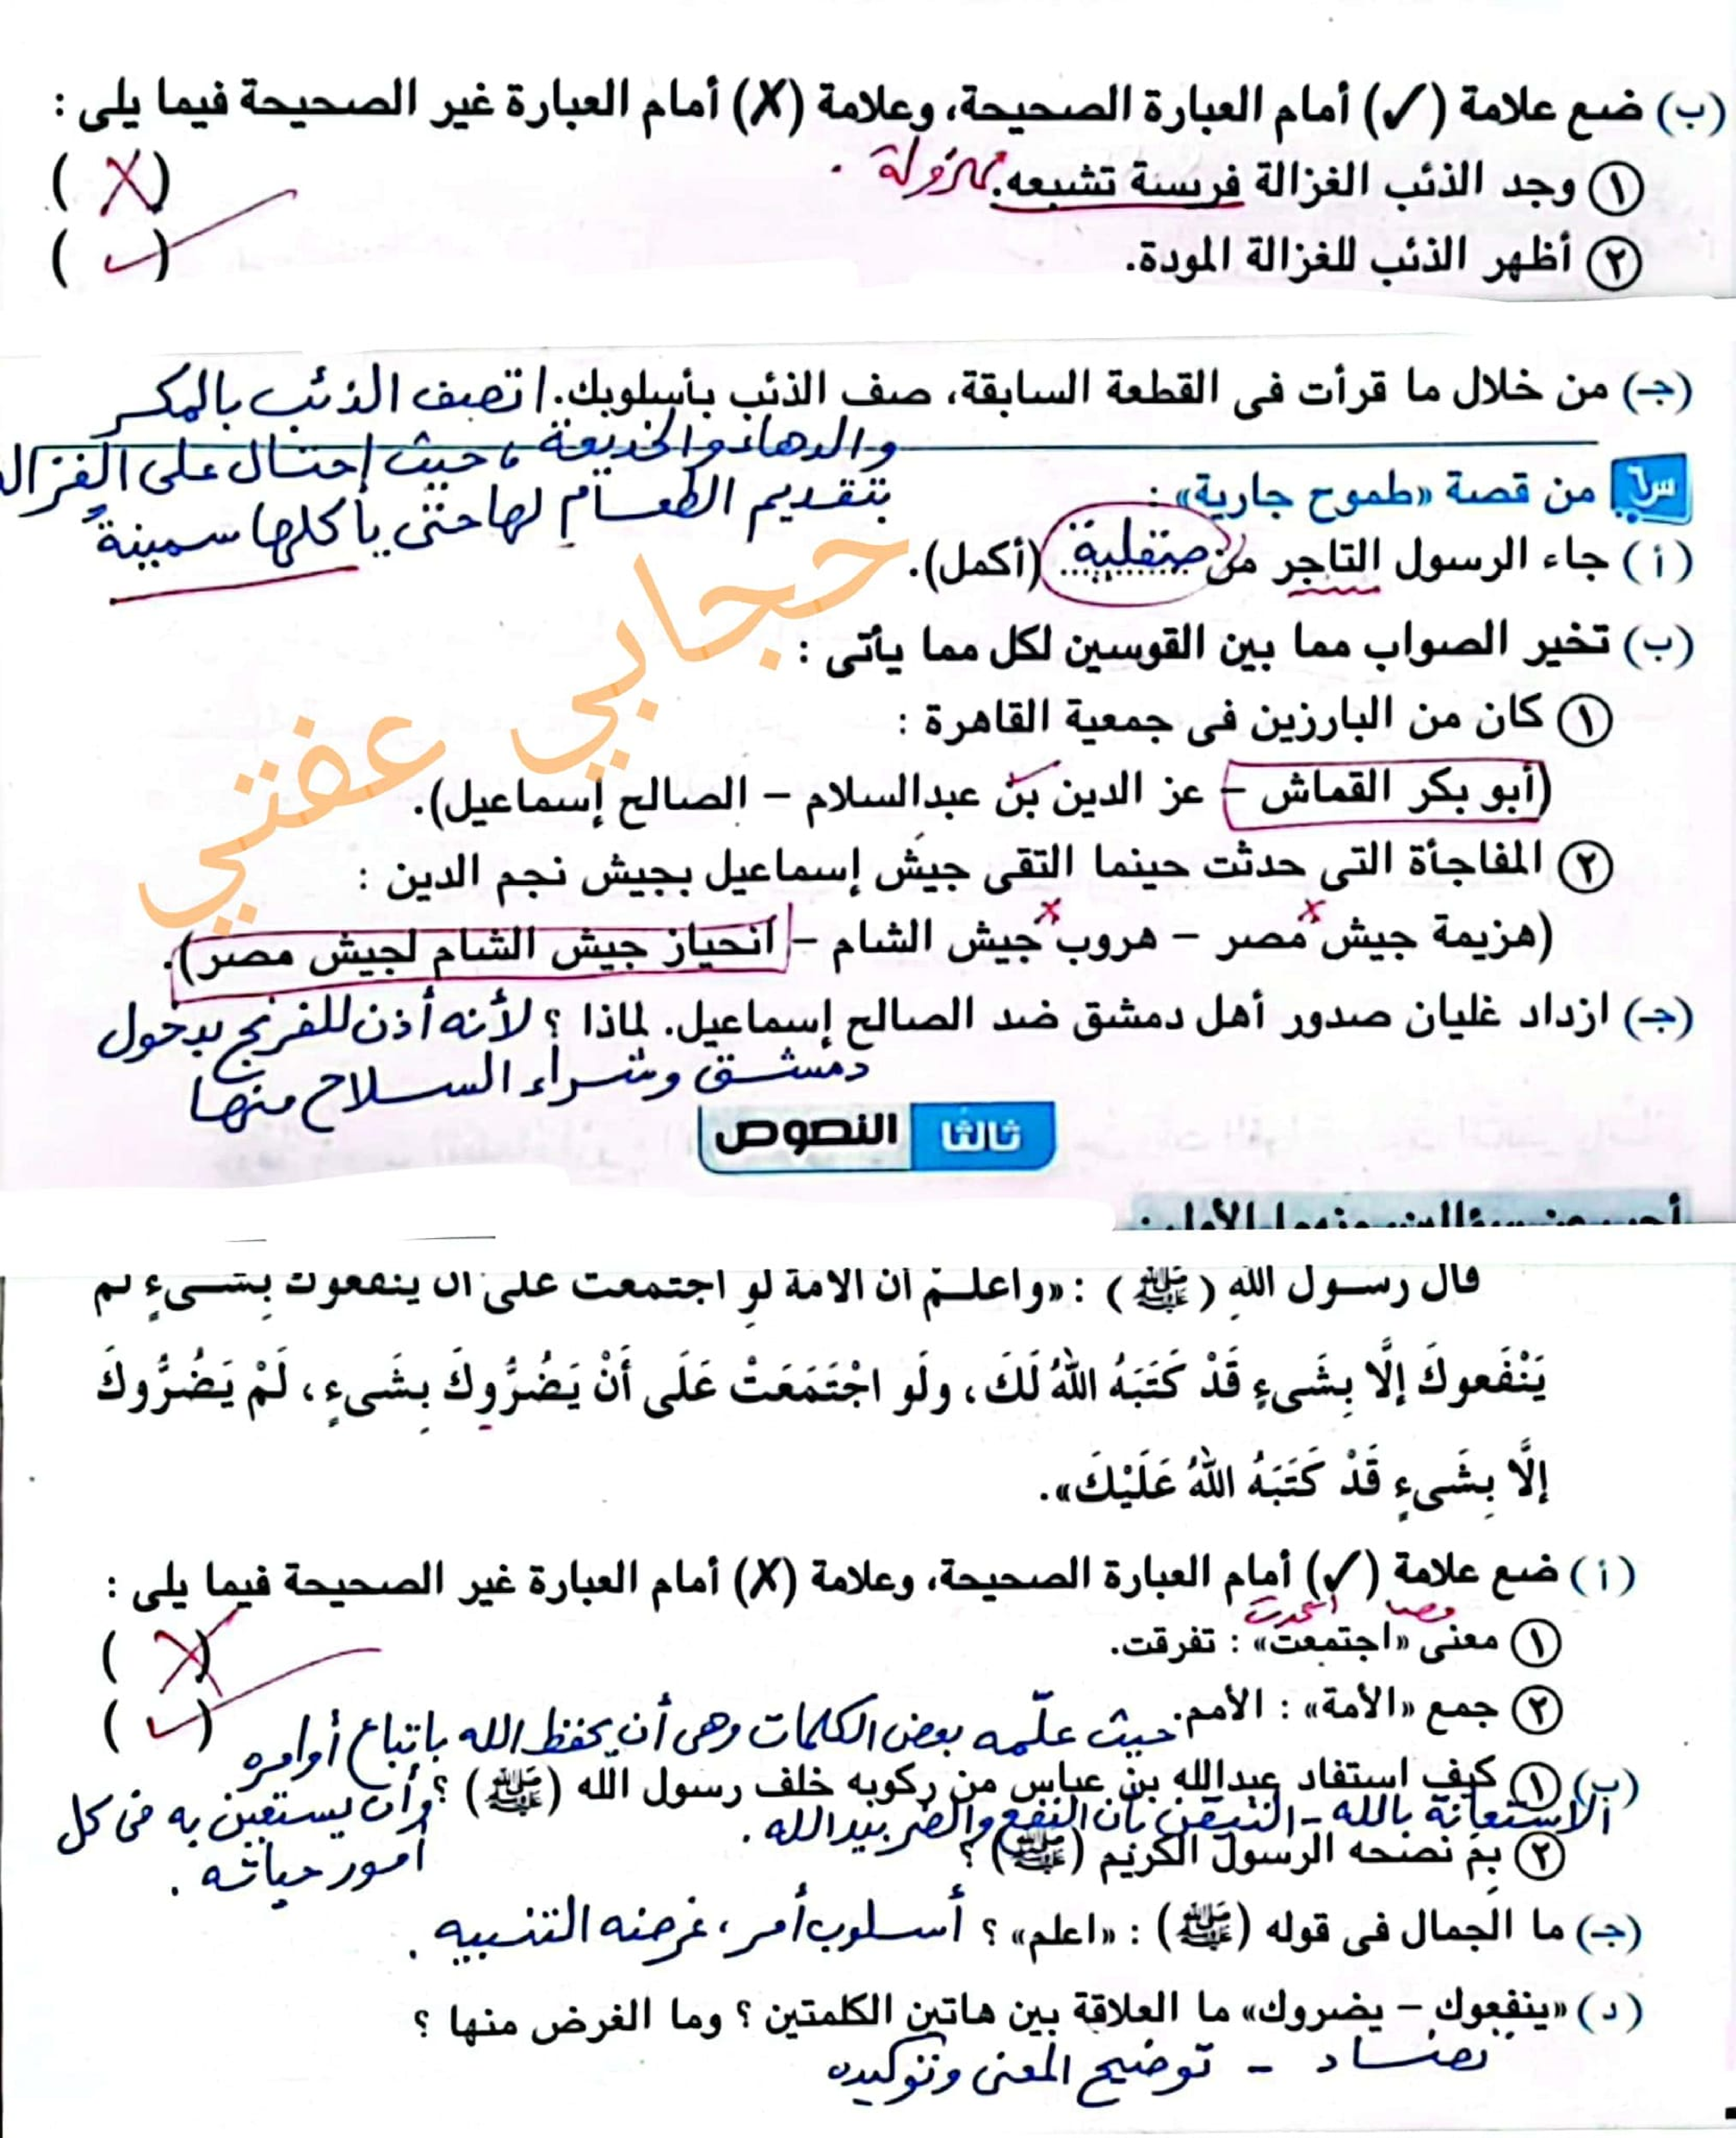 (ب) ضع علامة (✓) أمام العبارة الصحيحة، وعلامة (X) أمام العبارة غير الصحيحة فيما يلى :
١ وجد الذئب الغزالة فريسة تشبعه. مهزولة . ( X )
٢ أظهر الذئب للغزالة المودة. ( ✓ )
(جـ) من خلال ما قرأت فى القطعة السابقة، صف الذئب بأسلوبك. اتصف الذئب بالمكر
والدهاء والخديعة ، حيث إحتال على الغزالة
بتقديم الطعام لها حتى يأكلها سمينةً
س٦ من قصة «طموح جارية» :
(أ) جاء الرسول التاجر من صقلية (أكمل).
(ب) تخير الصواب مما بين القوسين لكل مما يأتى :
١ كان من البارزين فى جمعية القاهرة :
(أبو بكر القماش – عز الدين بن عبدالسلام – الصالح إسماعيل).
٢ المفاجأة التى حدثت حينما التقى جيش إسماعيل بجيش نجم الدين :
(هزيمة جيش مصر – هروب جيش الشام – انحياز جيش الشام لجيش مصر).
(جـ) ازداد غليان صدور أهل دمشق ضد الصالح إسماعيل. لماذا ؟ لأنه أذن للفرنج بدخول
دمشق وشراء السلاح منها
حجابي عفتي
ثالثا النصوص
قال رسول الله (ﷺ) : «واعلم أن الأمة لو اجتمعت على أن ينفعوك بشىءٍ لم
يَنْفَعوكَ إلَّا بِشَىءٍ قَدْ كَتَبَهُ اللهُ لَكَ، ولَو اجْتَمَعَتْ عَلَى أَنْ يَضُرُّوكَ بِشَىءٍ، لَمْ يَضُرُّوكَ
إلَّا بِشَىءٍ قَدْ كَتَبَهُ اللهُ عَلَيْكَ».
(أ) ضع علامة (✓) أمام العبارة الصحيحة، وعلامة (X) أمام العبارة غير الصحيحة فيما يلى :
اتحدت
١ معنى «اجتمعت» : تفرقت. ( X )
٢ جمع «الأمة» : الأمم. ( ✓ )
حيث علّمه بعض الكلمات وهى أن يحفظ الله باتباع أوامره
(ب) ١ كيف استفاد عبدالله بن عباس من ركوبه خلف رسول الله (ﷺ) ؟ وأن يستعين به فى كل
أمور حياته .
الاستعانة بالله - التيقن بأن النفع والضر بيد الله .
٢ بِمَ نصحه الرسول الكريم (ﷺ) ؟
(جـ) ما الجمال فى قوله (ﷺ) : «اعلم» ؟ أسلوب أمر ، غرضه التنبيه .
(د) «ينفعوك – يضروك» ما العلاقة بين هاتين الكلمتين ؟ وما الغرض منها ؟
تضاد - توضيح المعنى وتوكيده